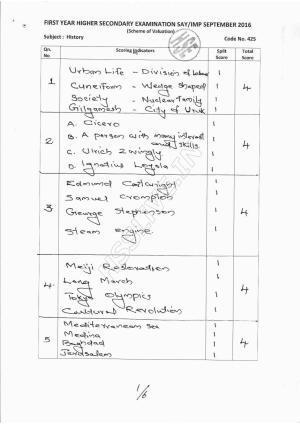 FIRST YEAR HIGHER SECONDARY EXAMINATION SAY/IMP SEPTEMBER 2016
(Scheme of Valuation)
Subject : History Code No. 425
Qn. No. Scoring Indicators Split Score Total Score
1 Urban Life - Division of labour 1 4
Cuneiform - Wedge Shaped 1
Society - Nuclear family 1
Gilgamesh - City of Uruk 1
2 A. Cicero 1 4
B. A person with many interest and skills 1
C. Ulrich Zwingly 1
D. Ignatius Loyola 1
3 Edmund Cartwright 1 4
Samuel Crompton 1
George Stephenson 1
Steam engine 1
4. Meiji Restoration 1 4
Long March 1
Tokyo Olympics 1
Cultural Revolution 1
5 Mediterranean sea 1 4
Medina 1
Baghdad 1
Jerusalem 1
1/6